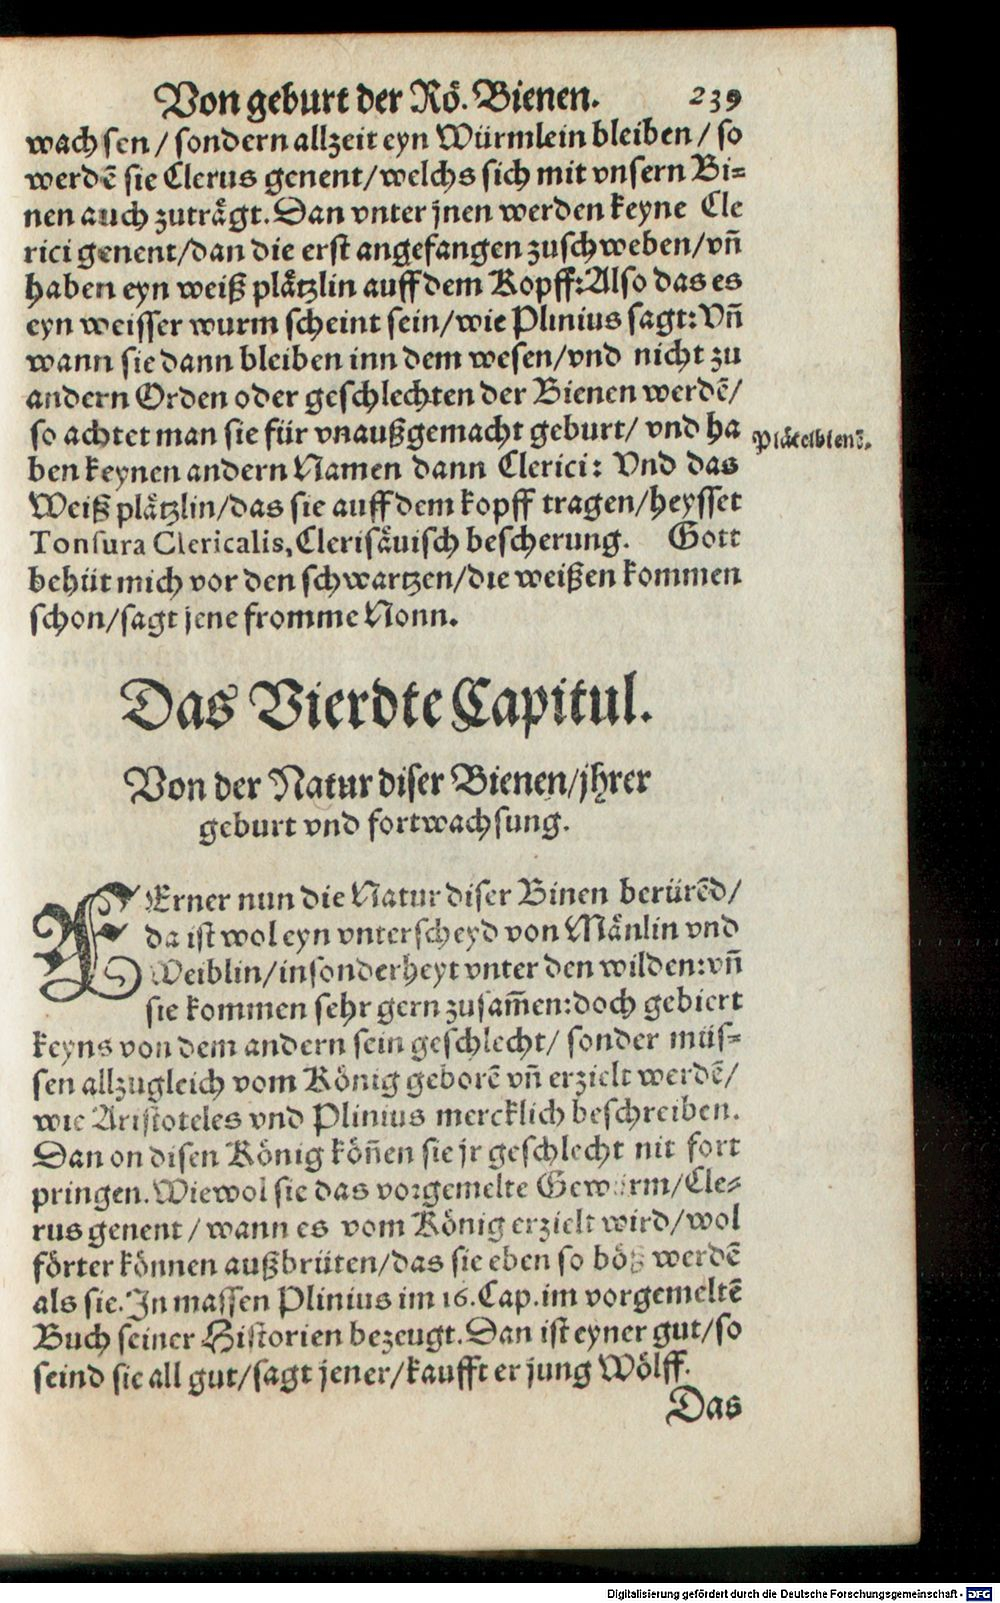 Von geburt der Rö. Bienen. 239
wachsen / sondern allzeit eyn Würmlein bleiben / so
werdē sie Clerus genent/welchs sich mit vnsern Bi-
nen auch zuträgt. Dan vnter jnen werden keyne Cle
rici genent/dan die erst angefangen zuschweben/vñ
haben eyn weiß plätzlin auff dem Kopff: Also das es
eyn weisser wurm scheint sein/wie Plinius sagt: Vñ
wann sie dann bleiben inn dem wesen/vnd nicht zu
andern Orden oder geschlechten der Bienen werdē/
so achtet man sie für vnaußgemacht geburt/ vnd ha
Plätelbienē.
ben keynen andern Namen dann Clerici: Vnd das
Weiß plätzlin/das sie auff dem kopff tragen/heysset
Tonsura Clericalis, Clerisäuisch bescherung. Gott
behüt mich vor den schwartzen/die weißen kommen
schon/sagt jene fromme Nonn.
Das Vierdte Capitul.
Von der Natur diser Bienen/jhrer
geburt vnd fortwachsung.
FErner nun die Natur diser Binen berürēd/
da ist wol eyn vnterscheyd von Mänlin vnd
Weiblin/insonderheyt vnter den wilden: vñ
sie kommen sehr gern zusam̃en: doch gebiert
keyns von dem andern sein geschlecht/ sonder müs-
sen allzugleich vom König geborē vñ erzielt werdē/
wie Aristoteles vnd Plinius mercklich beschreiben.
Dan on disen König kön̄en sie jr geschlecht nit fort
pringen. Wiewol sie das vorgemelte Gewürm/Cle-
rus genent / wann es vom König erzielt wird/wol
förter können außbrüten/das sie eben so böß werdē
als sie. In massen Plinius im 16. Cap. im vorgemeltē
Buch seiner Historien bezeugt. Dan ist eyner gut/so
seind sie all gut/sagt jener/kaufft er jung Wölff.
Das
Digitalisierung gefördert durch die Deutsche Forschungsgemeinschaft - DFG